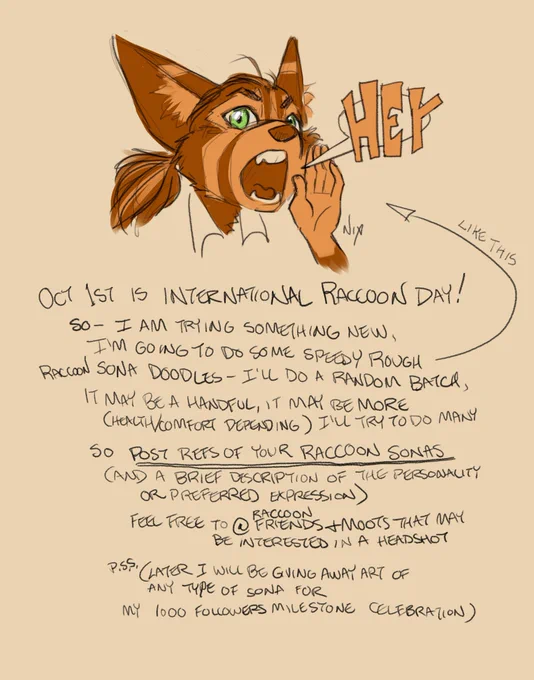 HEY
NIX
LIKE THIS
OCT 1ST IS INTERNATIONAL RACCOON DAY!
SO- I AM TRYING SOMETHING NEW,
I'M GOING TO DO SOME SPEEDY ROUGH
RACCOON SONA DOODLES - I'LL DO A RANDOM BATCH,
IT MAY BE A HANDFUL, IT MAY BE MORE
(HEALTH/COMFORT DEPENDING) I'LL TRY TO DO MANY
SO POST REFS OF YOUR RACCOON SONAS
(AND A BRIEF DESCRIPTION OF THE PERSONALITY
OR PREFERRED EXPRESSION)
RACCOON
FEEL FREE TO @ FRIENDS + MOOTS THAT MAY
BE INTERESTED IN A HEADSHOT
P.S.S. (LATER I WILL BE GIVING AWAY ART OF
ANY TYPE OF SONA FOR
MY 1000 FOLLOWERS MILESTONE CELEBRATION)